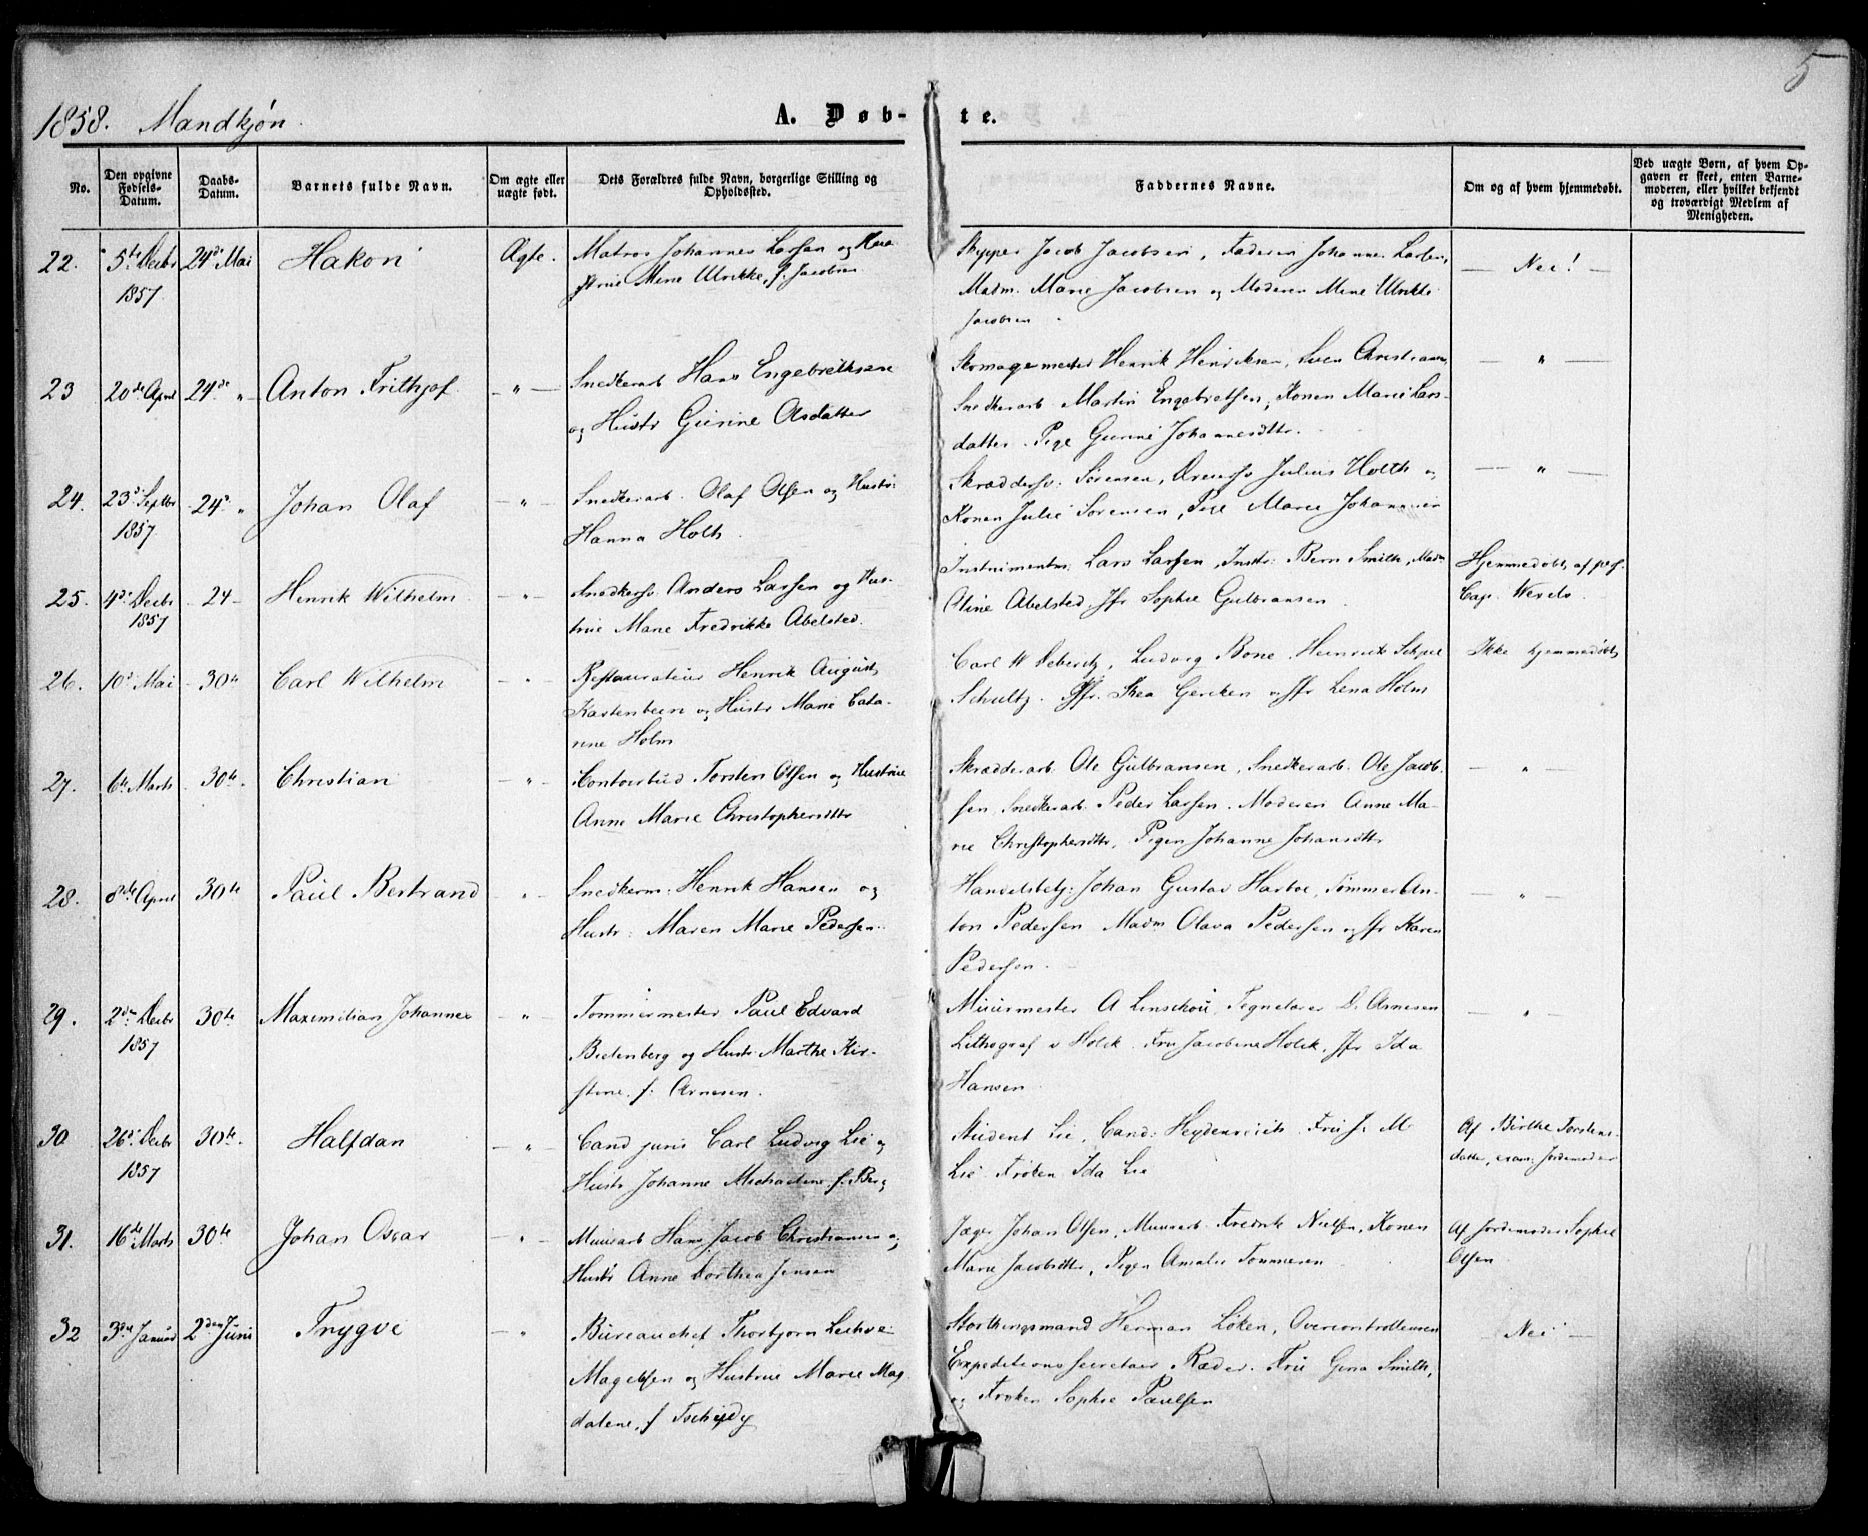 5
1858. Mandkjøn.
A. Døb-te.
No.
Den opgivne Fødsels-Datum.
Daabs-Datum.
Barnets fulde Navn.
Om ægte eller uægte født.
Dets Forældres fulde Navn, borgerlige Stilling og Opholdssted.
Faddernes Navne.
Om og af hvem hjemmedøbt.
Ved uægte Børn, af hvem Opgaven er skeet, enten Barnemoderen, eller hvilket bekjendt og troværdigt Medlem af Menigheden.
22. 5te Decbr 24de Mai Hakon Ægte. Matros Johannes Larsen og Hu-
1857 strue Mene Ulrikke, f. Jacobsen
Skipper Jacob Jacobsen, Faderen Johannes Larsen,
Madm. Marie Jacobsen og Moderen Mene Ulrikke
Jacobsen.
— Nei! —
23 20de April 24de " Anton Frithjof — " — Snedkerarb Hans Engebrethsen
og Hustr Gurine Asdatter
Skomagermester Henrik Henriksen, Sven Christiansen,
Snedkerarb Martin Engebretsen, Konen Marie Lars-
datter. Pige Gurine Johannesdttr.
— " —
24. 23d Septbr 24d " Johan Olaf — " — Snedkerarb. Olaf Olsen og Hustr:
1857 Hanna Holth
Skrædders: Sørensen, Julius Holth og
Konen Julie Sørensen, Pige Marie Johannesen
— " —
25. 4de Decbr 24 — Henrik Wilhelm — " — Snedkers. Anders Larsen og Hus-
1857 true Marie Fredrikke Abelsted.
Instrumentm. Lars Larsen, Instr: Bern Smith, Madm
Oline Abelsted. Jfr Sophie Gulbransen.
Hjemmedøbt af
Cap. Wexels.
26. 10d Mai 30te Carl Wilhelm — " — Restaurateur Henrik August
Kastenbein og Hustr Marie Catha-
rine Holm
Carl W Ludvig Bone, Heinrich
Schultz. Jfr. Thea Gercken og Jfr Lena Holm
Ikke hjemmedøbt
27. 6te Marts 30te. Christian — " — Contoirbud Torsten Olsen og Hustrue
Anne Marie Christophersdttr
Skrædderarb. Ole Gulbransen, Snedkerarb. Ole Jacob-
sen, Snedkerarb. Peder Larsen. Moderen Anne Ma-
rie Christophersdttr, Pigen Johanne Johansdttr
— " —
28. 8de April 30te Paul Bertrand — " — Snedkerm: Henrik Hansen og
Hustr: Maren Marie Pedersen.
Handelsbetj: Johan Gustav Harboe, Tømmer An-
ton Pedersen Madm Olava Pedersen og Jfr Karen
Pedersen.
— " —
29. 2den Decbr 30te Maximilian Johannes — " — Tømmermester Paul Edvard
1857 Bielenberg og Hustr. Marthe Kir-
stine, f. Arnesen.
Muurmester A Linschou, Tegnelærer D. Arnesen
Lithograf v Holck. Fru Jacobine Holck, Jfr Ida
Hansen
— " —
30 26d Decbr 30te. Halfdan — " — Cand juris Carl Ludvig Lie og
1857 Hustr Johanne Michaeline f. Berg
Student Lie, Cand: Heydenreich Fru J. M
Lie. Frøken Ida Lie
Af Birthe Torstens-
datter, exam: Jordemoder
31. 16de Marts 30te Johan Oscar — " — Muurarb Hans Jacob Christiansen og
Hustr Anne Dorthea Jensen
Jæger Johan Olsen, Muurarb. Fredrik Nielsen, Konen
Marie Jacobsdttr, Pigen Amalie Tommesen
Af Jordemoder Sophie
Olsen
32 3die Januar 2den Juni Trygve — " — Bureauchef Thorbjørn Lechve
Magelssen og Hustrue Marie Mag-
dalene, f Tschudy
Storthingsmand Herman Løken, Overcontrolleuren
Expeditionssecretair Ræder. Fru Gina Smith,
og Frøken Sophie Paulsen
— Nei —